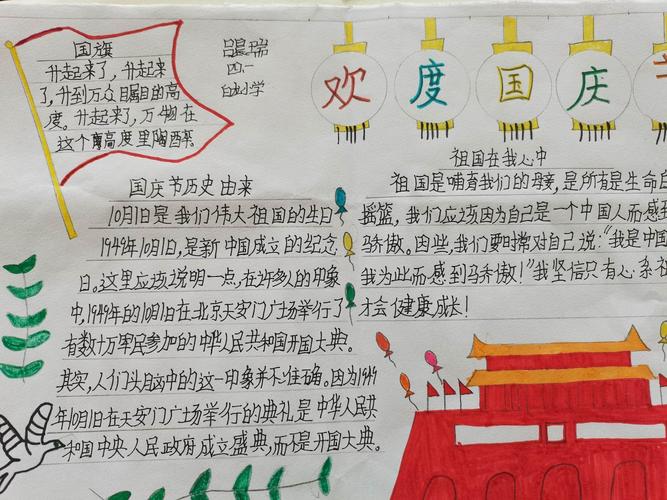 国旗
升起来了,升起来
了,升到万众瞩目的高
度。升起来了,万物在
这个高度里陶醉。
四.一
小学
欢度国庆
国庆节历史由来
10月1日是我们伟大祖国的生日
1949年10月1日,是新中国成立的纪念
日。这里应该说明一点,在许多人的印象
中,1949年的10月1日在北京天安门广场举行了
有数十万军民参加的中华人民共和国开国大典。
其实,人们头脑中的这一印象并不准确。因为1949
年10月1日在天安门广场举行的典礼是中华人民共
和国中央人民政府成立盛典,而不是开国大典。
祖国在我心中
祖国是哺育我们的母亲,是所有是生命自
摇篮,我们应该因为自己是一个中国人而感到
骄傲。因些,我们要时常对自己说:“我是中国
我为此而感到骄傲!”我坚信只有心系祖
才会健康成长!